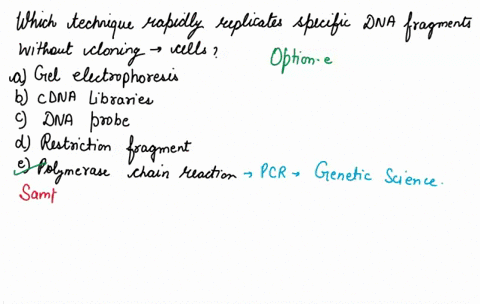 Which technique rapidly replicates specific DNA fragments
without cloning → cells?
Option-e
a) Gel electrophoresis
b) cDNA libraries
c) DNA probe
d) Restriction fragment
e) Polymerase chain reaction → PCR → Genetic Science.
Samp